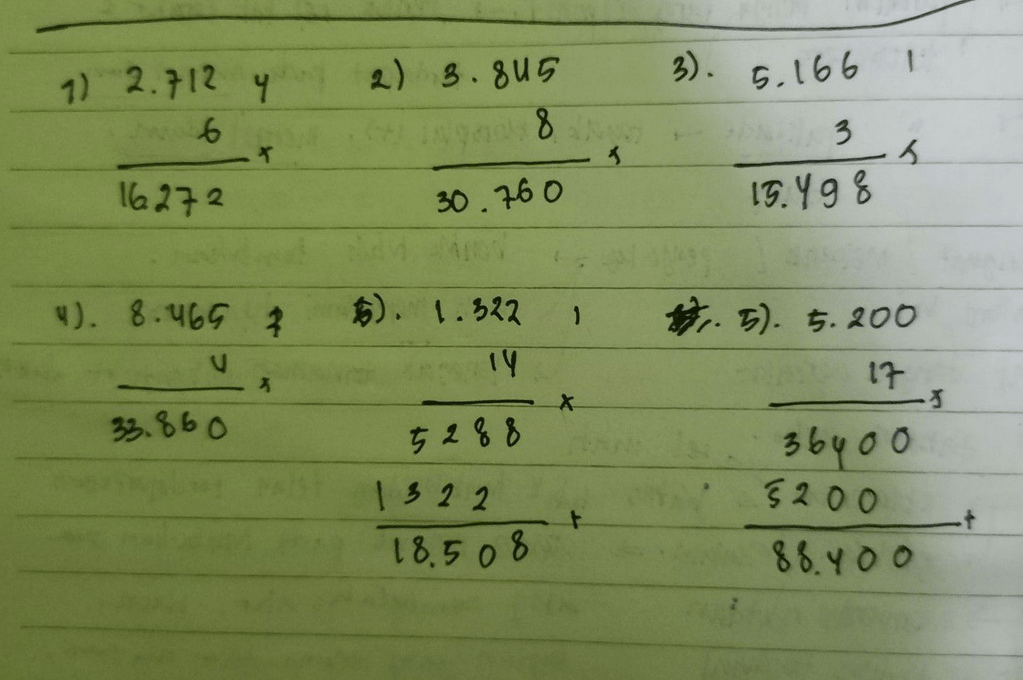 1) 2.712 4 2) 3.845 3). 5.166 1
6 x 8 x 3 x
16272 30.760 15.498
4). 8.465 2 5). 1.322 1 5). 5.200
4 x 14 x 17 x
33.860 5288 36400
1322 + 5200 +
18.508 88.400